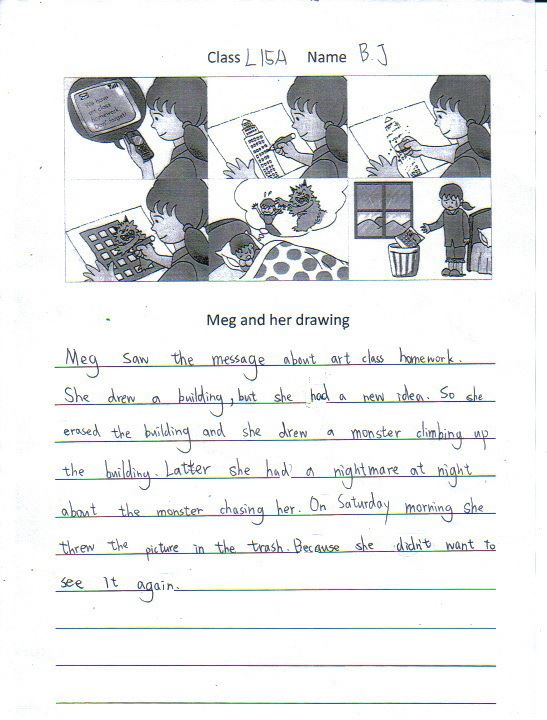 Class L15A Name B.J
You have
art class
homework
Don't forget!
Meg and her drawing
Meg saw the message about art class homework.
She drew a building, but she had a new idea. So she
erased the building and she drew a monster climbing up
the building. Latter she had a nightmare at night
about the monster chasing her. On Saturday morning she
threw the picture in the trash. Because she didn't want to
see it again.